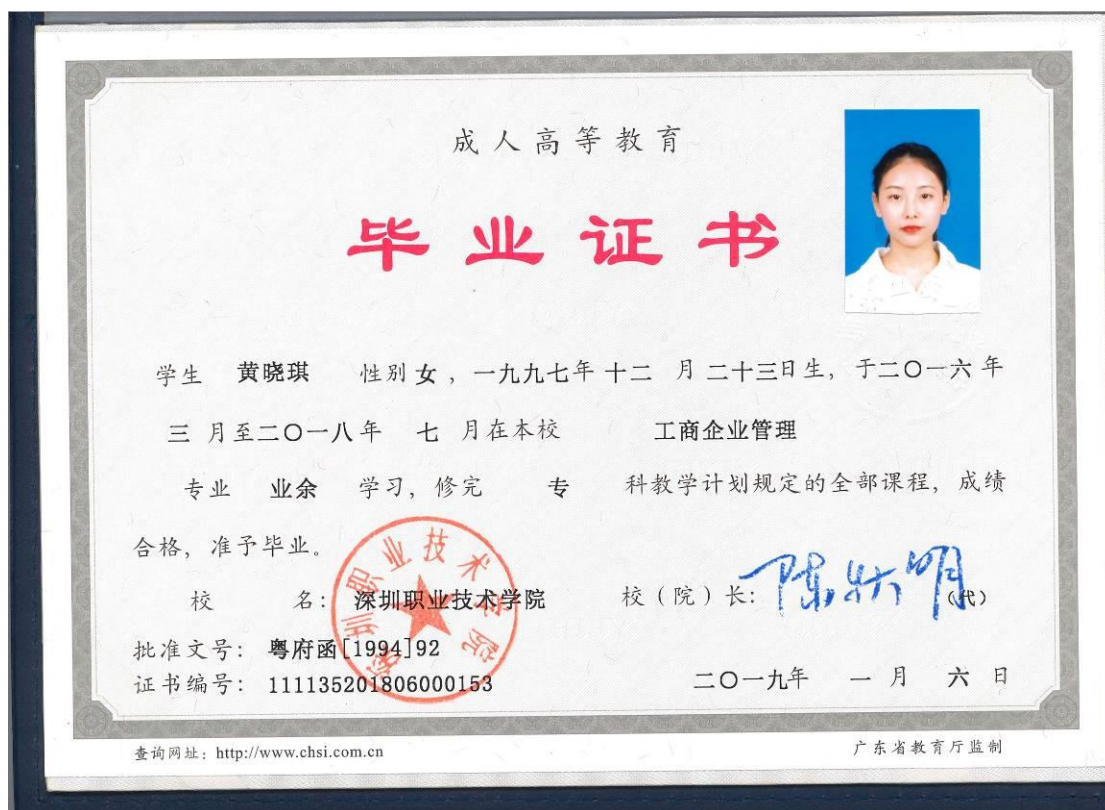 成人高等教育
毕业证书
学生 黄晓琪 性别 女 ，一九九七年 十二 月 二十三日生，于二〇一六年
三 月至二〇一八年 七 月在本校 工商企业管理
专业 业余 学习，修完 专 科教学计划规定的全部课程，成绩
合格，准予毕业。
校 名：深圳职业技术学院 校（院）长： (代)
批准文号：粤府函[1994]92
证书编号：111135201806000153 二〇一九年 一 月 六 日
深圳职业技术学院
查询网址：http://www.chsi.com.cn 广东省教育厅监制